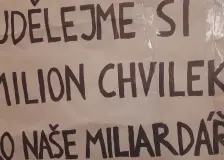 UDĚLEJME SI
MILION CHVILEK
O NAŠE MILIARDÁŘ